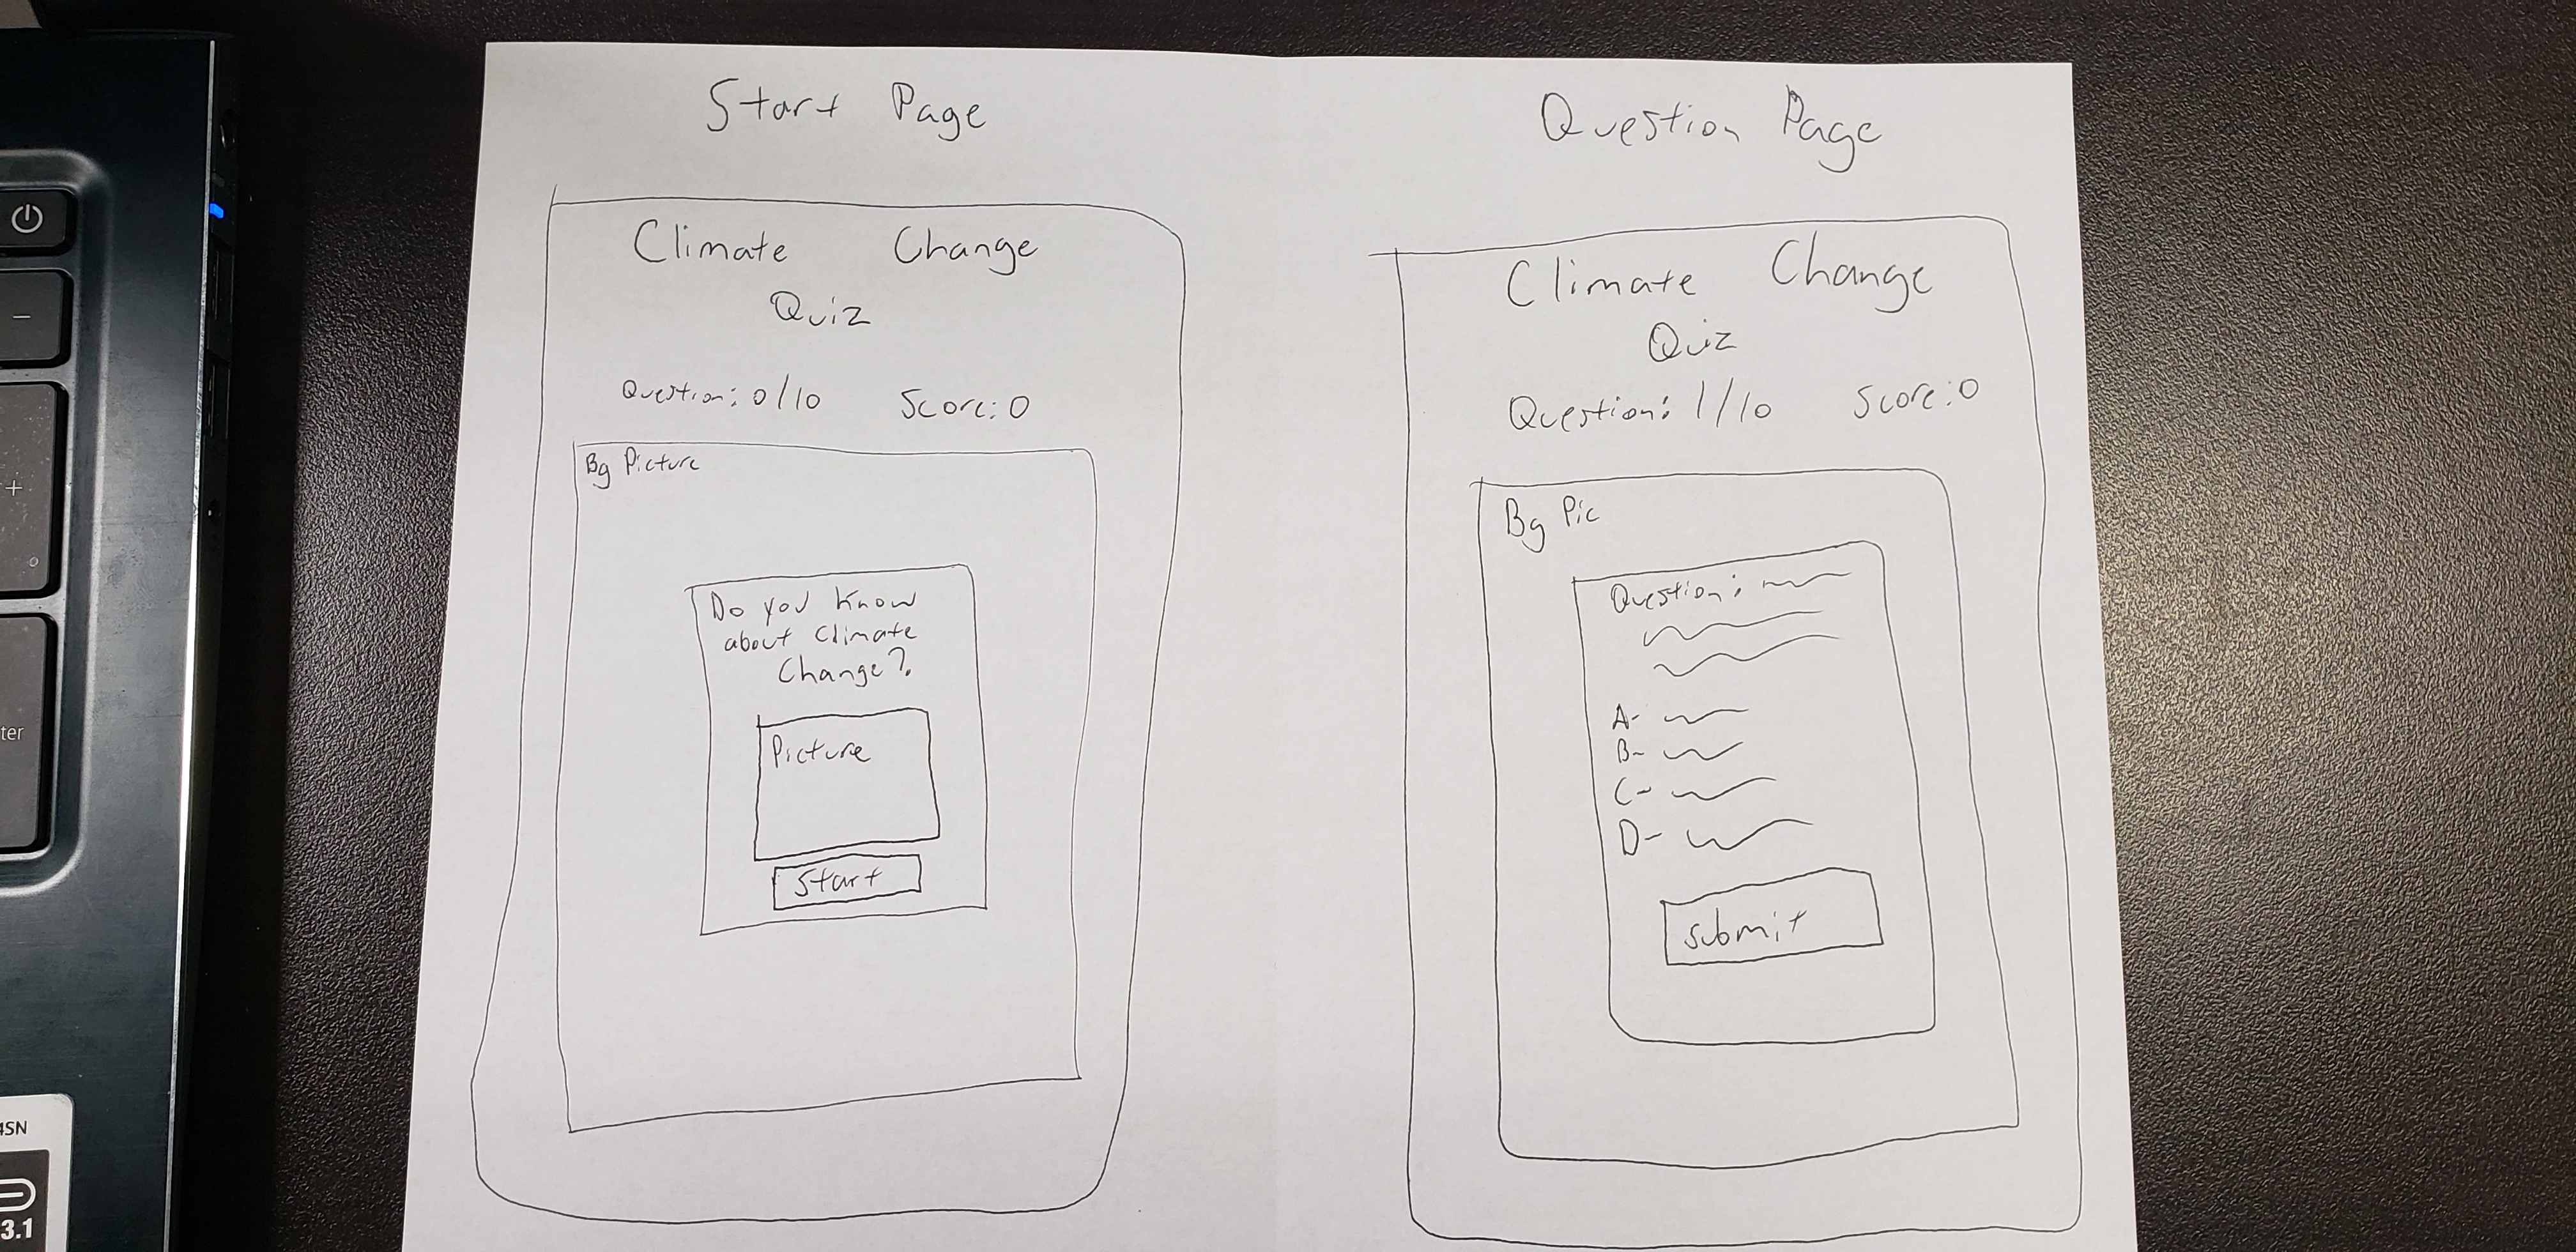 Start Page
Climate Change
Quiz
Question: 0/10 Score: 0
Bg Picture
Do you know
about Climate
Change?
Picture
Start
Question Page
Climate Change
Quiz
Question: 1/10 Score: 0
Bg Pic
Question:
A-
B-
C-
D-
submit
ter
4SN
3.1